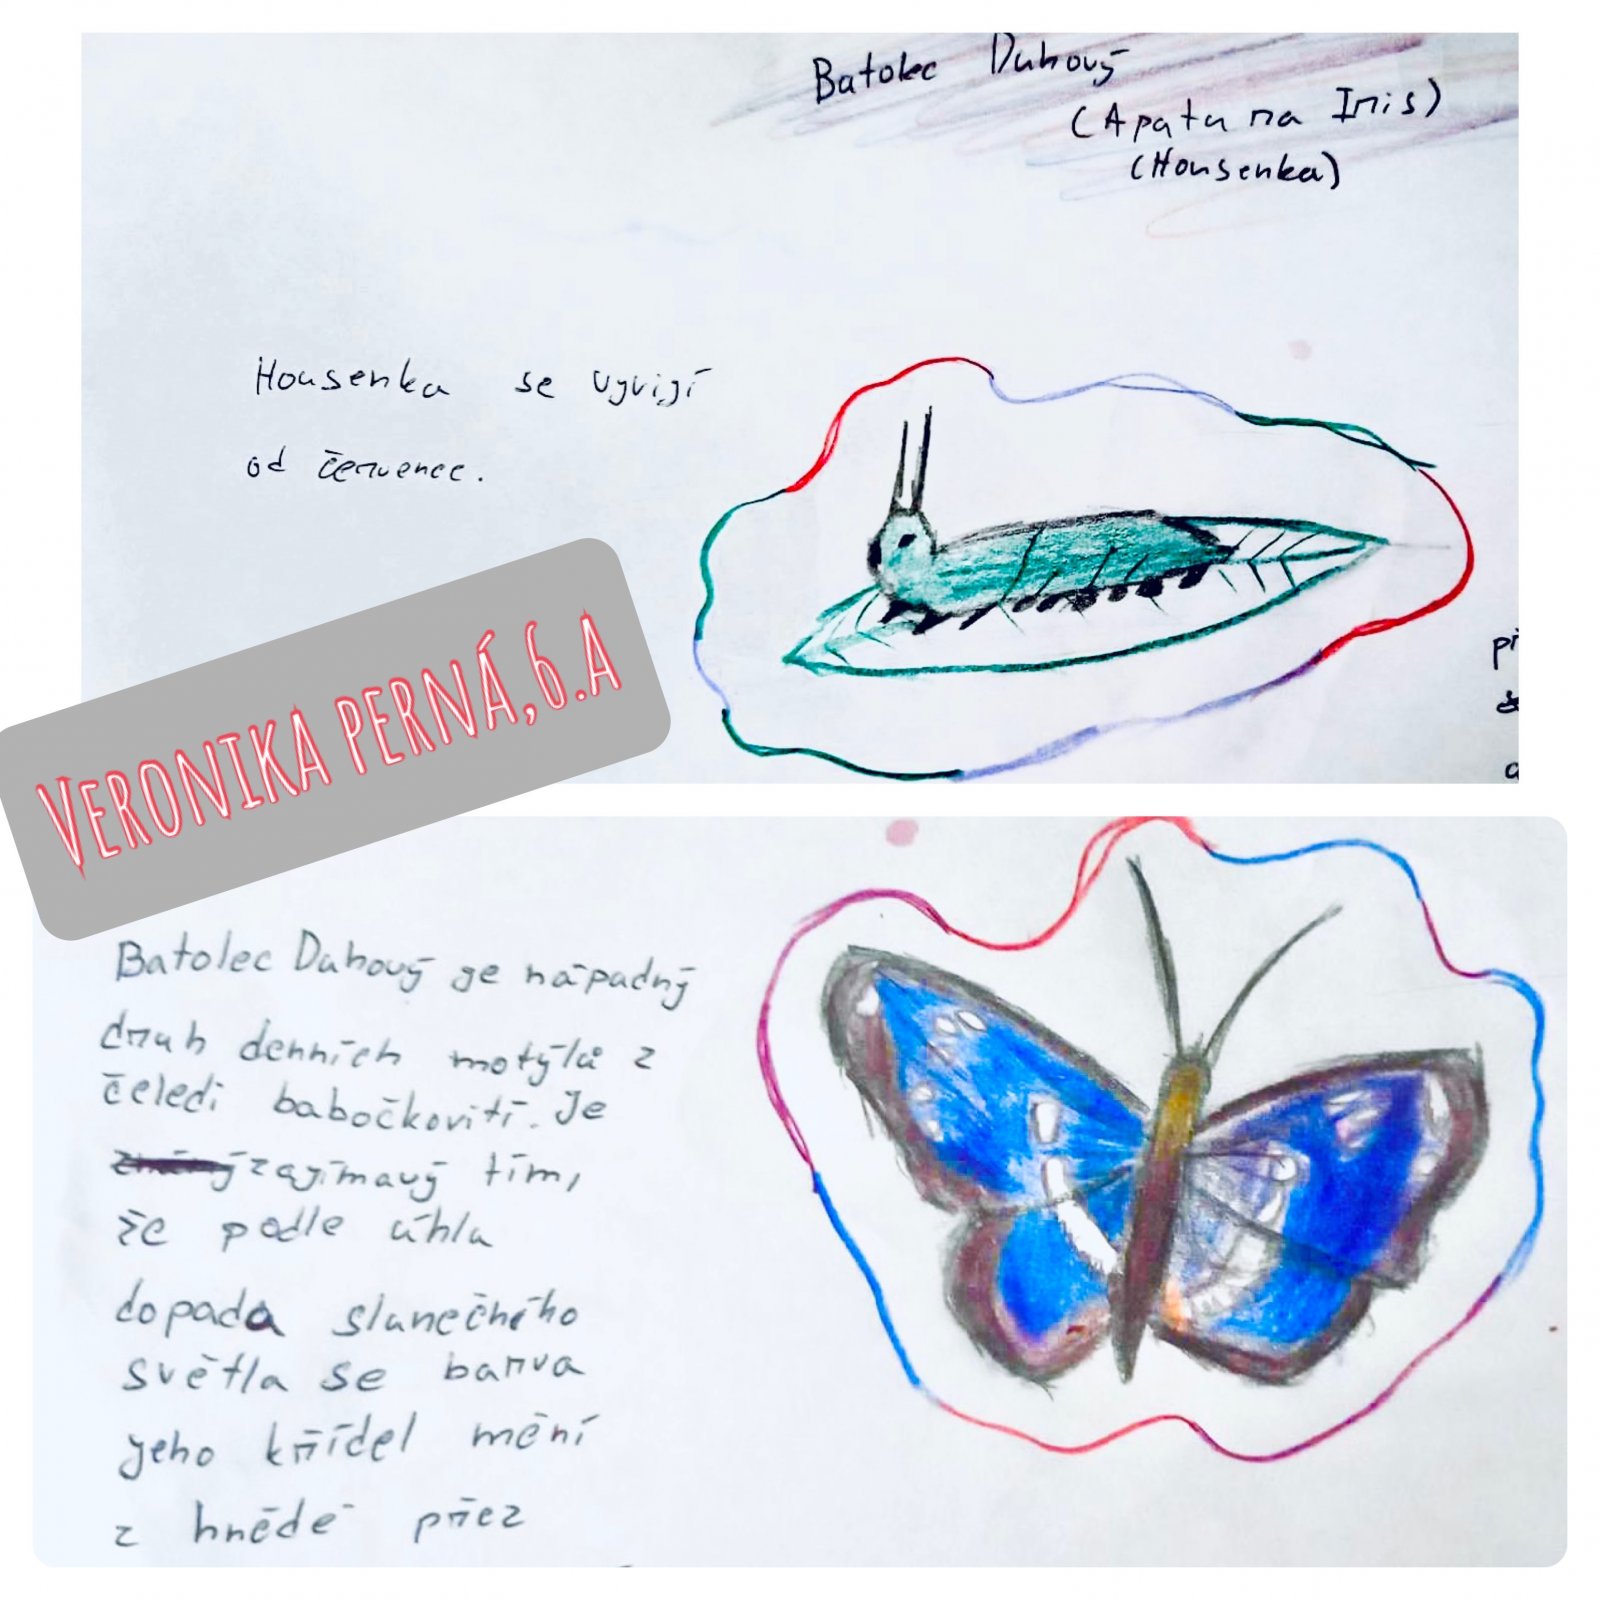 Batolec Duhový
(Apatura Iris)
(Housenka)
Housenka se vyvijí
od červenec.
př
VERONIKA PERNÁ,6.A
Batolec Duhový je nápadný
druh denních motýlů z
čeledi babočkovití. Je
zajímavý tím,
že podle úhla
dopada slunečního
světla se barva
jeho křídel mění
z hnědé přez